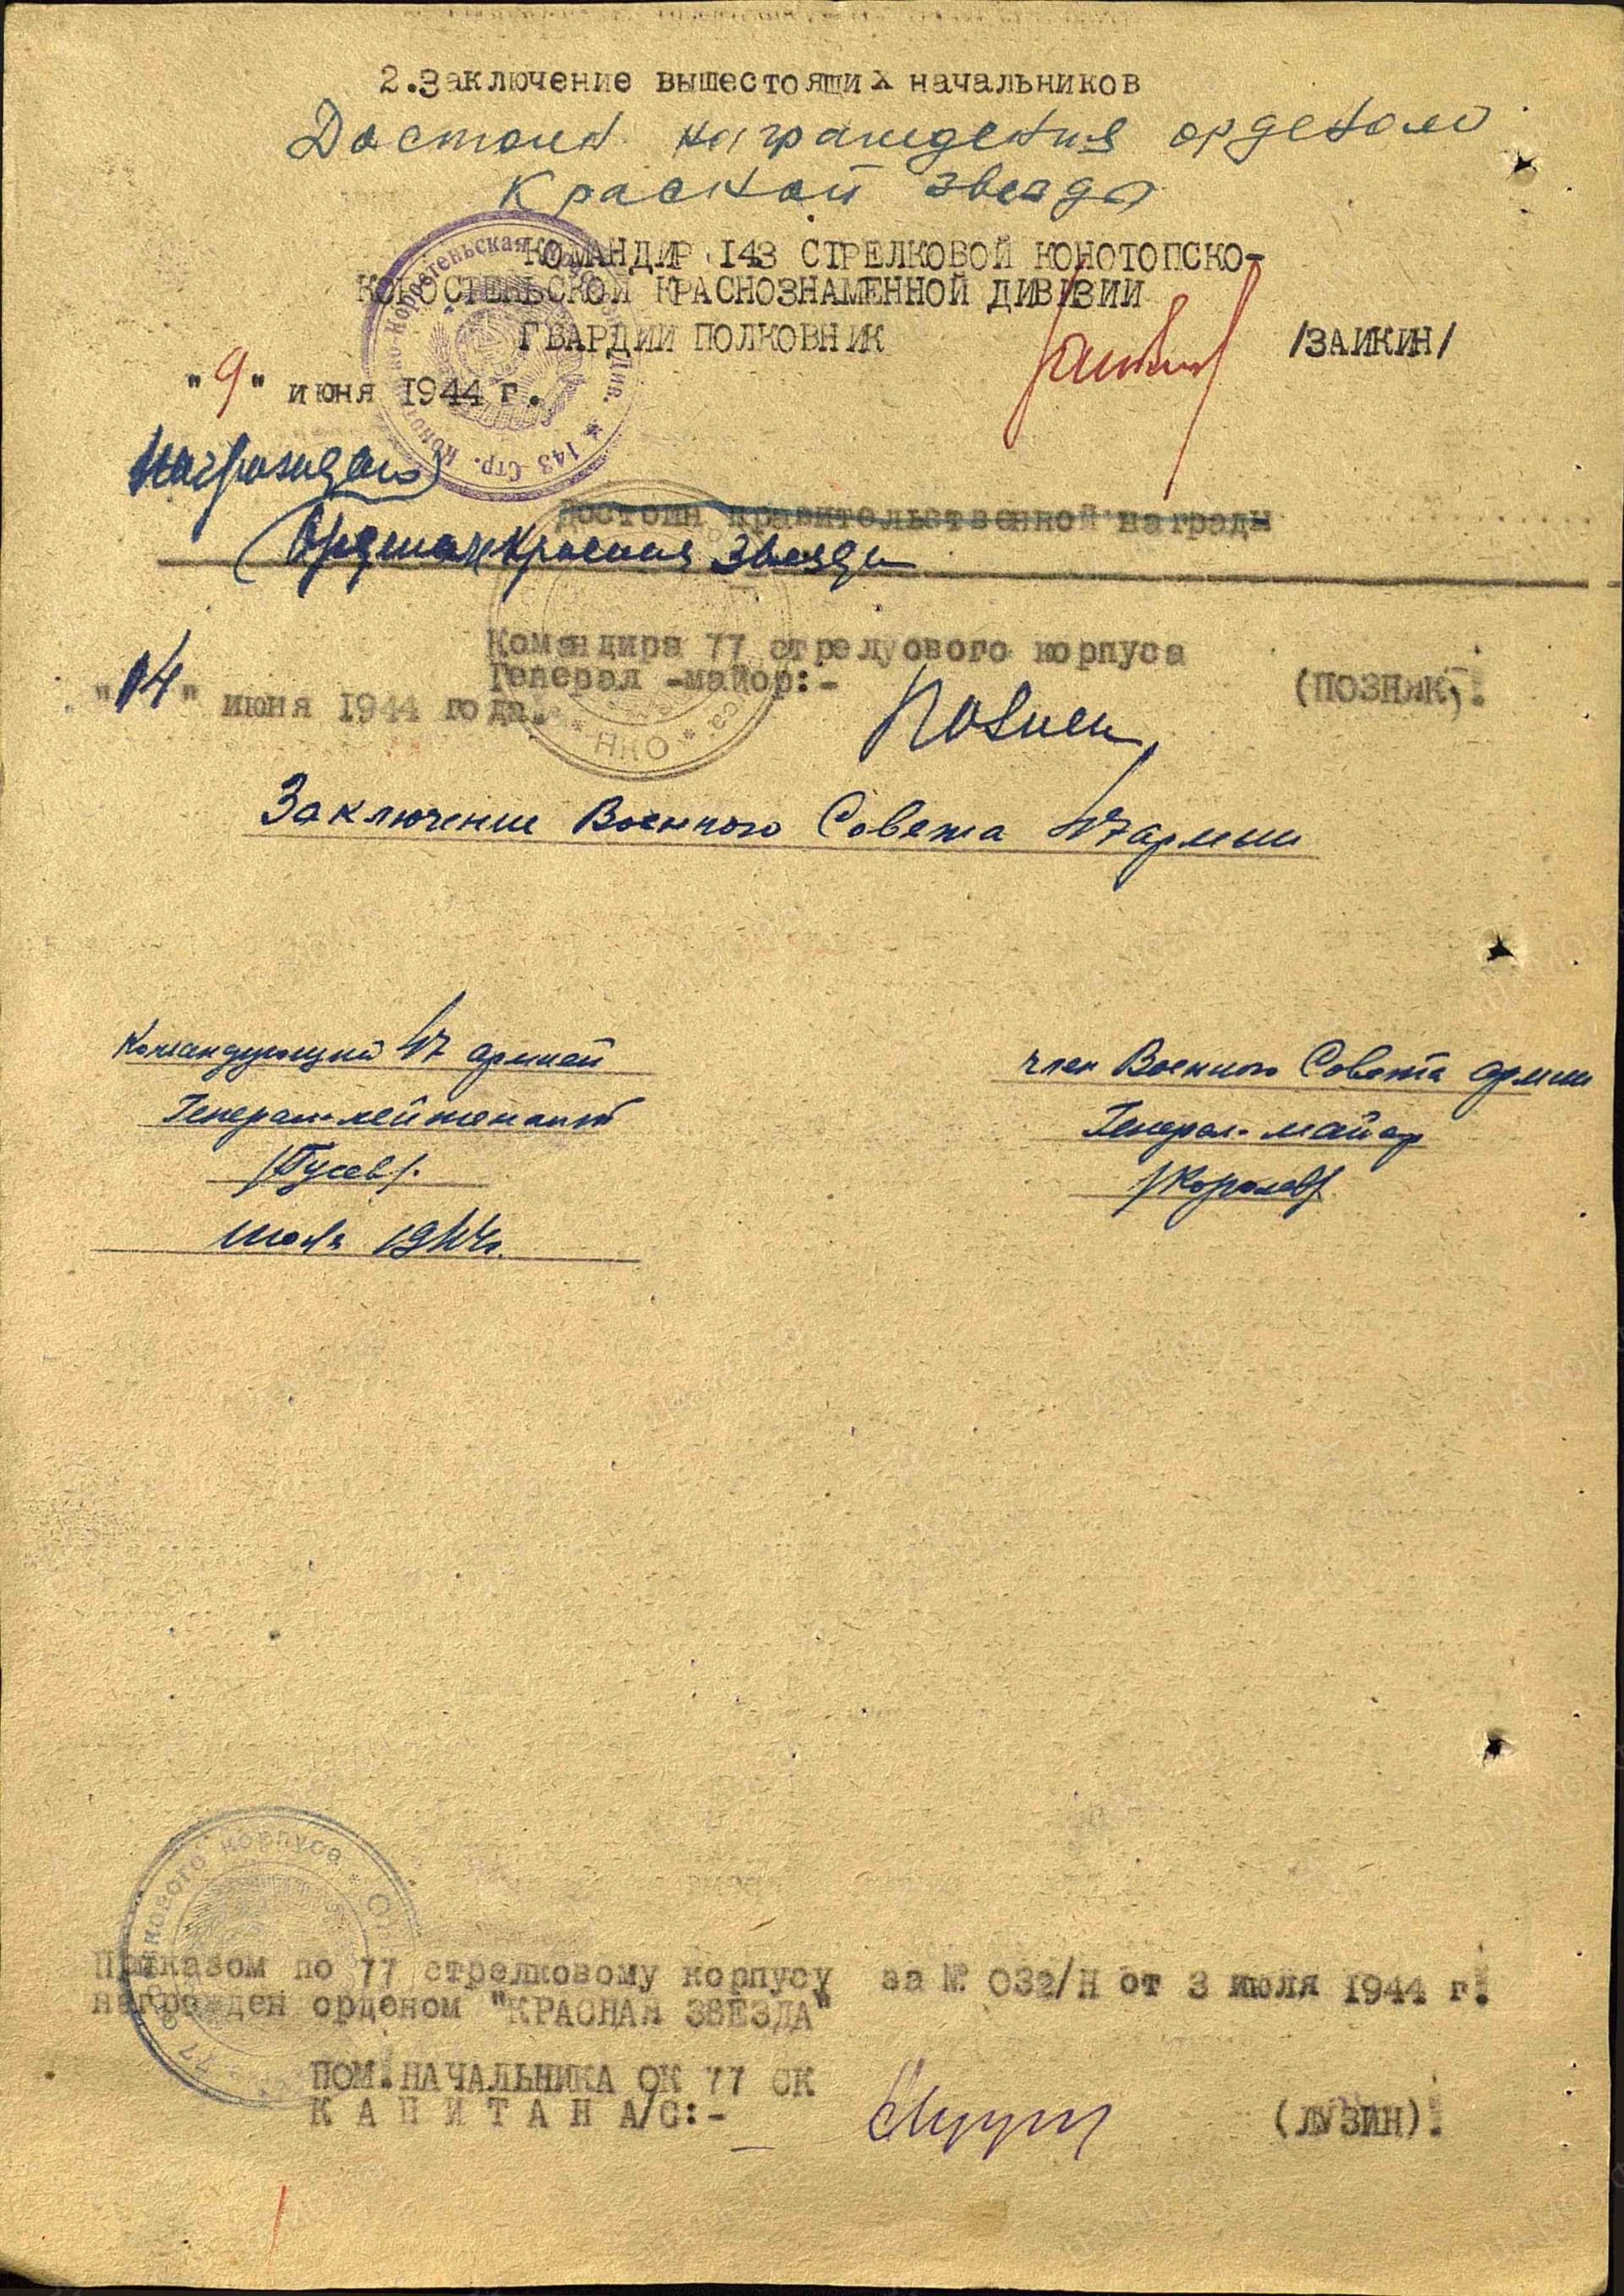 2.Заключение вышестоящих начальников
Достоин награждения орденом
Красной звезды
КОМАНДИР 143 СТРЕЛКОВОЙ КОНОТОПСКО-
КОРОСТЕНЬСКОЙ КРАСНОЗНАМЕННОЙ ДИВИЗИИ
ГВАРДИИ ПОЛКОВНИК /ЗАИКИН/
"9" июня 1944 г.
Награждаю
Достоин правительственной награды
Орденом Красная Звезда
Командира 77 стрелуового корпуса
Генерал -майор:- (ПОЗНЯК).
"14" июня 1944 года.
Заключение Военного Совета 47 армии
Командующий 47 армией
Генерал-лейтенант
/Гусев/.
июля 1944г.
член Военного Совета армии
Генерал-майор
/Королев/
Приказом по 77 стрелковому корпусу за № 032/Н от 3 июля 1944 г.
награжден орденом "КРАСНАЯ ЗВЕЗДА"
ПОМ.НАЧАЛЬНИКА ОК 77 СК
КАПИТАН А/С:- (ЛУЗИН).